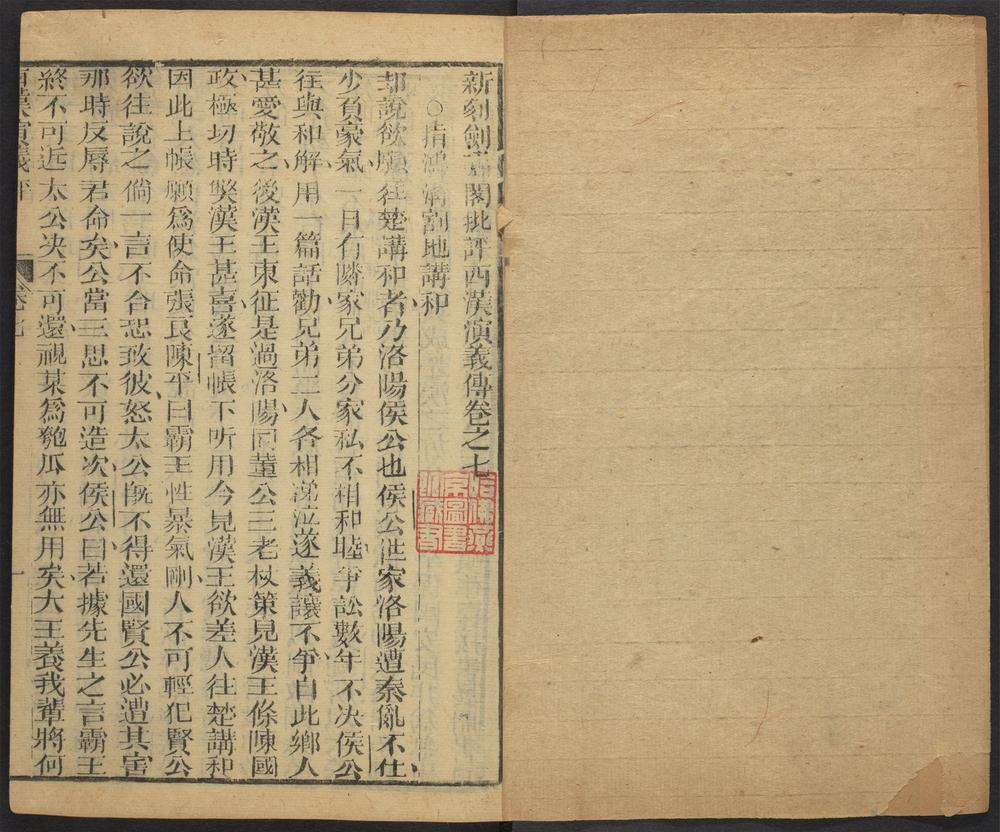 新刻劍嘯閣批評西漢演義傳卷之七
○指鴻溝割地講和
却說欲願往楚講和者乃洛陽侯公也侯公世家洛陽遭秦亂不仕
少負豪氣一日有隣家兄弟分家私不相和睦爭訟數年不决侯公
往與和解用一篇話勸兄弟二人各相涕泣遂義讓不爭自此鄉人
甚愛敬之後漢王東征是過洛陽同董公三老杖策見漢王條陳國
政極切時獘漢王甚喜遂留帳下听用今見漢王欲差人往楚講和
因此上帳願爲使命張良陳平曰霸王性暴氣剛人不可輕犯賢公
欲往說之倘一言不合恐致彼怒太公旣不得還國賢公必遭其害
那時反辱君命矣公當三思不可造次侯公曰若據先生之言霸王
終不可近太公决不可還視某爲匏瓜亦無用矣大王養我輩將何
西漢演義評
卷七
一
哈佛燕京圖書館藏書